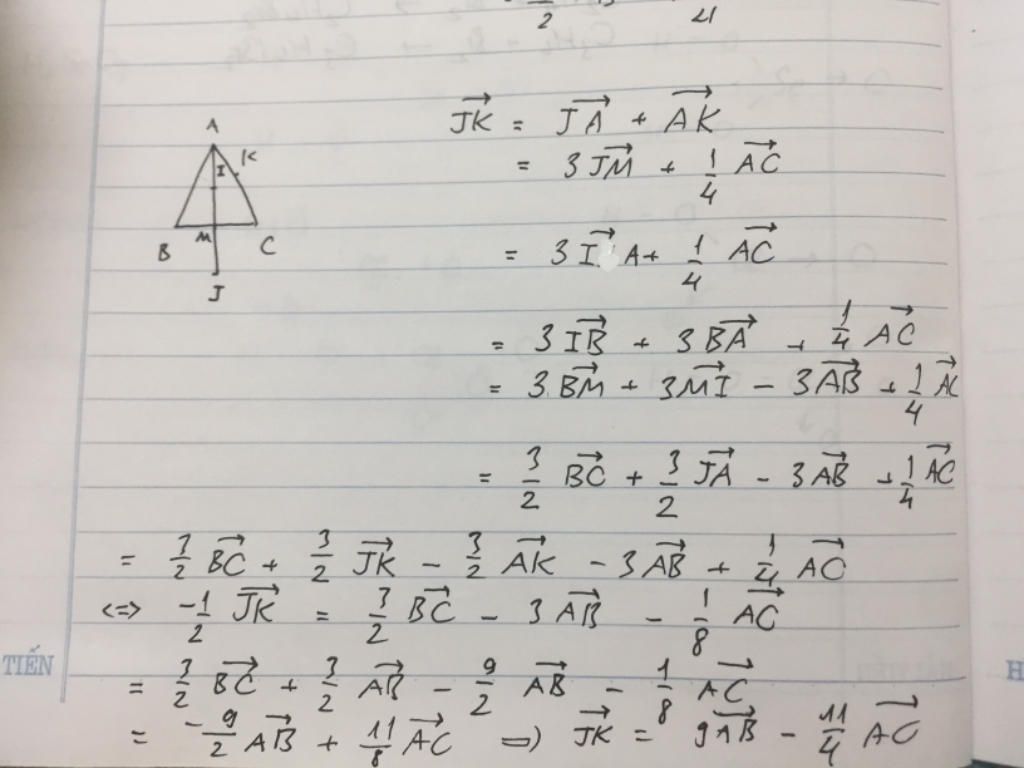 A
I K
B M C
J
\overrightarrow{JK} = \overrightarrow{JA} + \overrightarrow{AK}
= 3\overrightarrow{JM} + \frac{1}{4} \overrightarrow{AC}
= 3\overrightarrow{IA} + \frac{1}{4} \overrightarrow{AC}
= 3\overrightarrow{IB} + 3\overrightarrow{BA} + \frac{1}{4} \overrightarrow{AC}
= 3\overrightarrow{BM} + 3\overrightarrow{MI} - 3\overrightarrow{AB} + \frac{1}{4} \overrightarrow{AC}
= \frac{3}{2} \overrightarrow{BC} + \frac{3}{2} \overrightarrow{JA} - 3\overrightarrow{AB} + \frac{1}{4} \overrightarrow{AC}
= \frac{3}{2} \overrightarrow{BC} + \frac{3}{2} \overrightarrow{JK} - \frac{3}{2} \overrightarrow{AK} - 3\overrightarrow{AB} + \frac{1}{4} \overrightarrow{AC}
<=> -\frac{1}{2} \overrightarrow{JK} = \frac{3}{2} \overrightarrow{BC} - 3\overrightarrow{AB} - \frac{1}{8} \overrightarrow{AC}
TIẾN
= \frac{3}{2} \overrightarrow{BC} + \frac{3}{2} \overrightarrow{AB} - \frac{9}{2} \overrightarrow{AB} - \frac{1}{8} \overrightarrow{AC}
= -\frac{9}{2} \overrightarrow{AB} + \frac{11}{8} \overrightarrow{AC} => \overrightarrow{JK} = 9\overrightarrow{AB} - \frac{11}{4} \overrightarrow{AC}